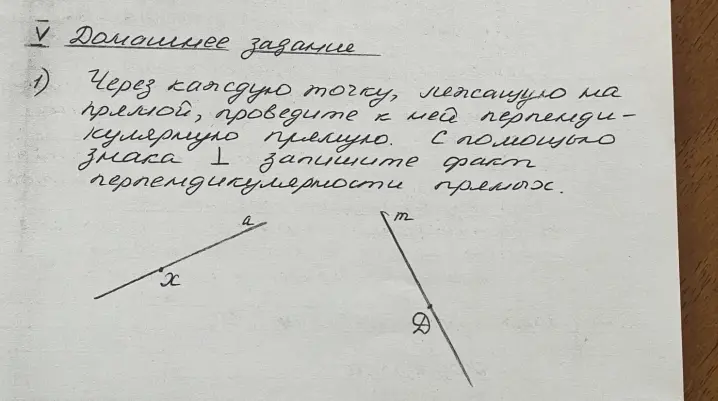 V Домашнее задание
1) Через каждую точку, лежащую на
прямой, проведите к ней перпенди-
кулярную прямую. С помощью
знака ⊥ запишите факт
перпендикулярности прямых.
a
m
x
D